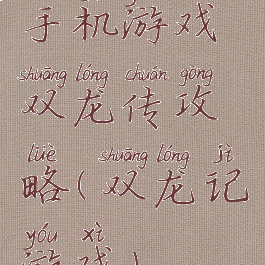 手机游戏
shuāng lóng chuán gōng
双龙传攻
lüè shuāng lóng jì
略(双龙记
yóu xì
游戏)